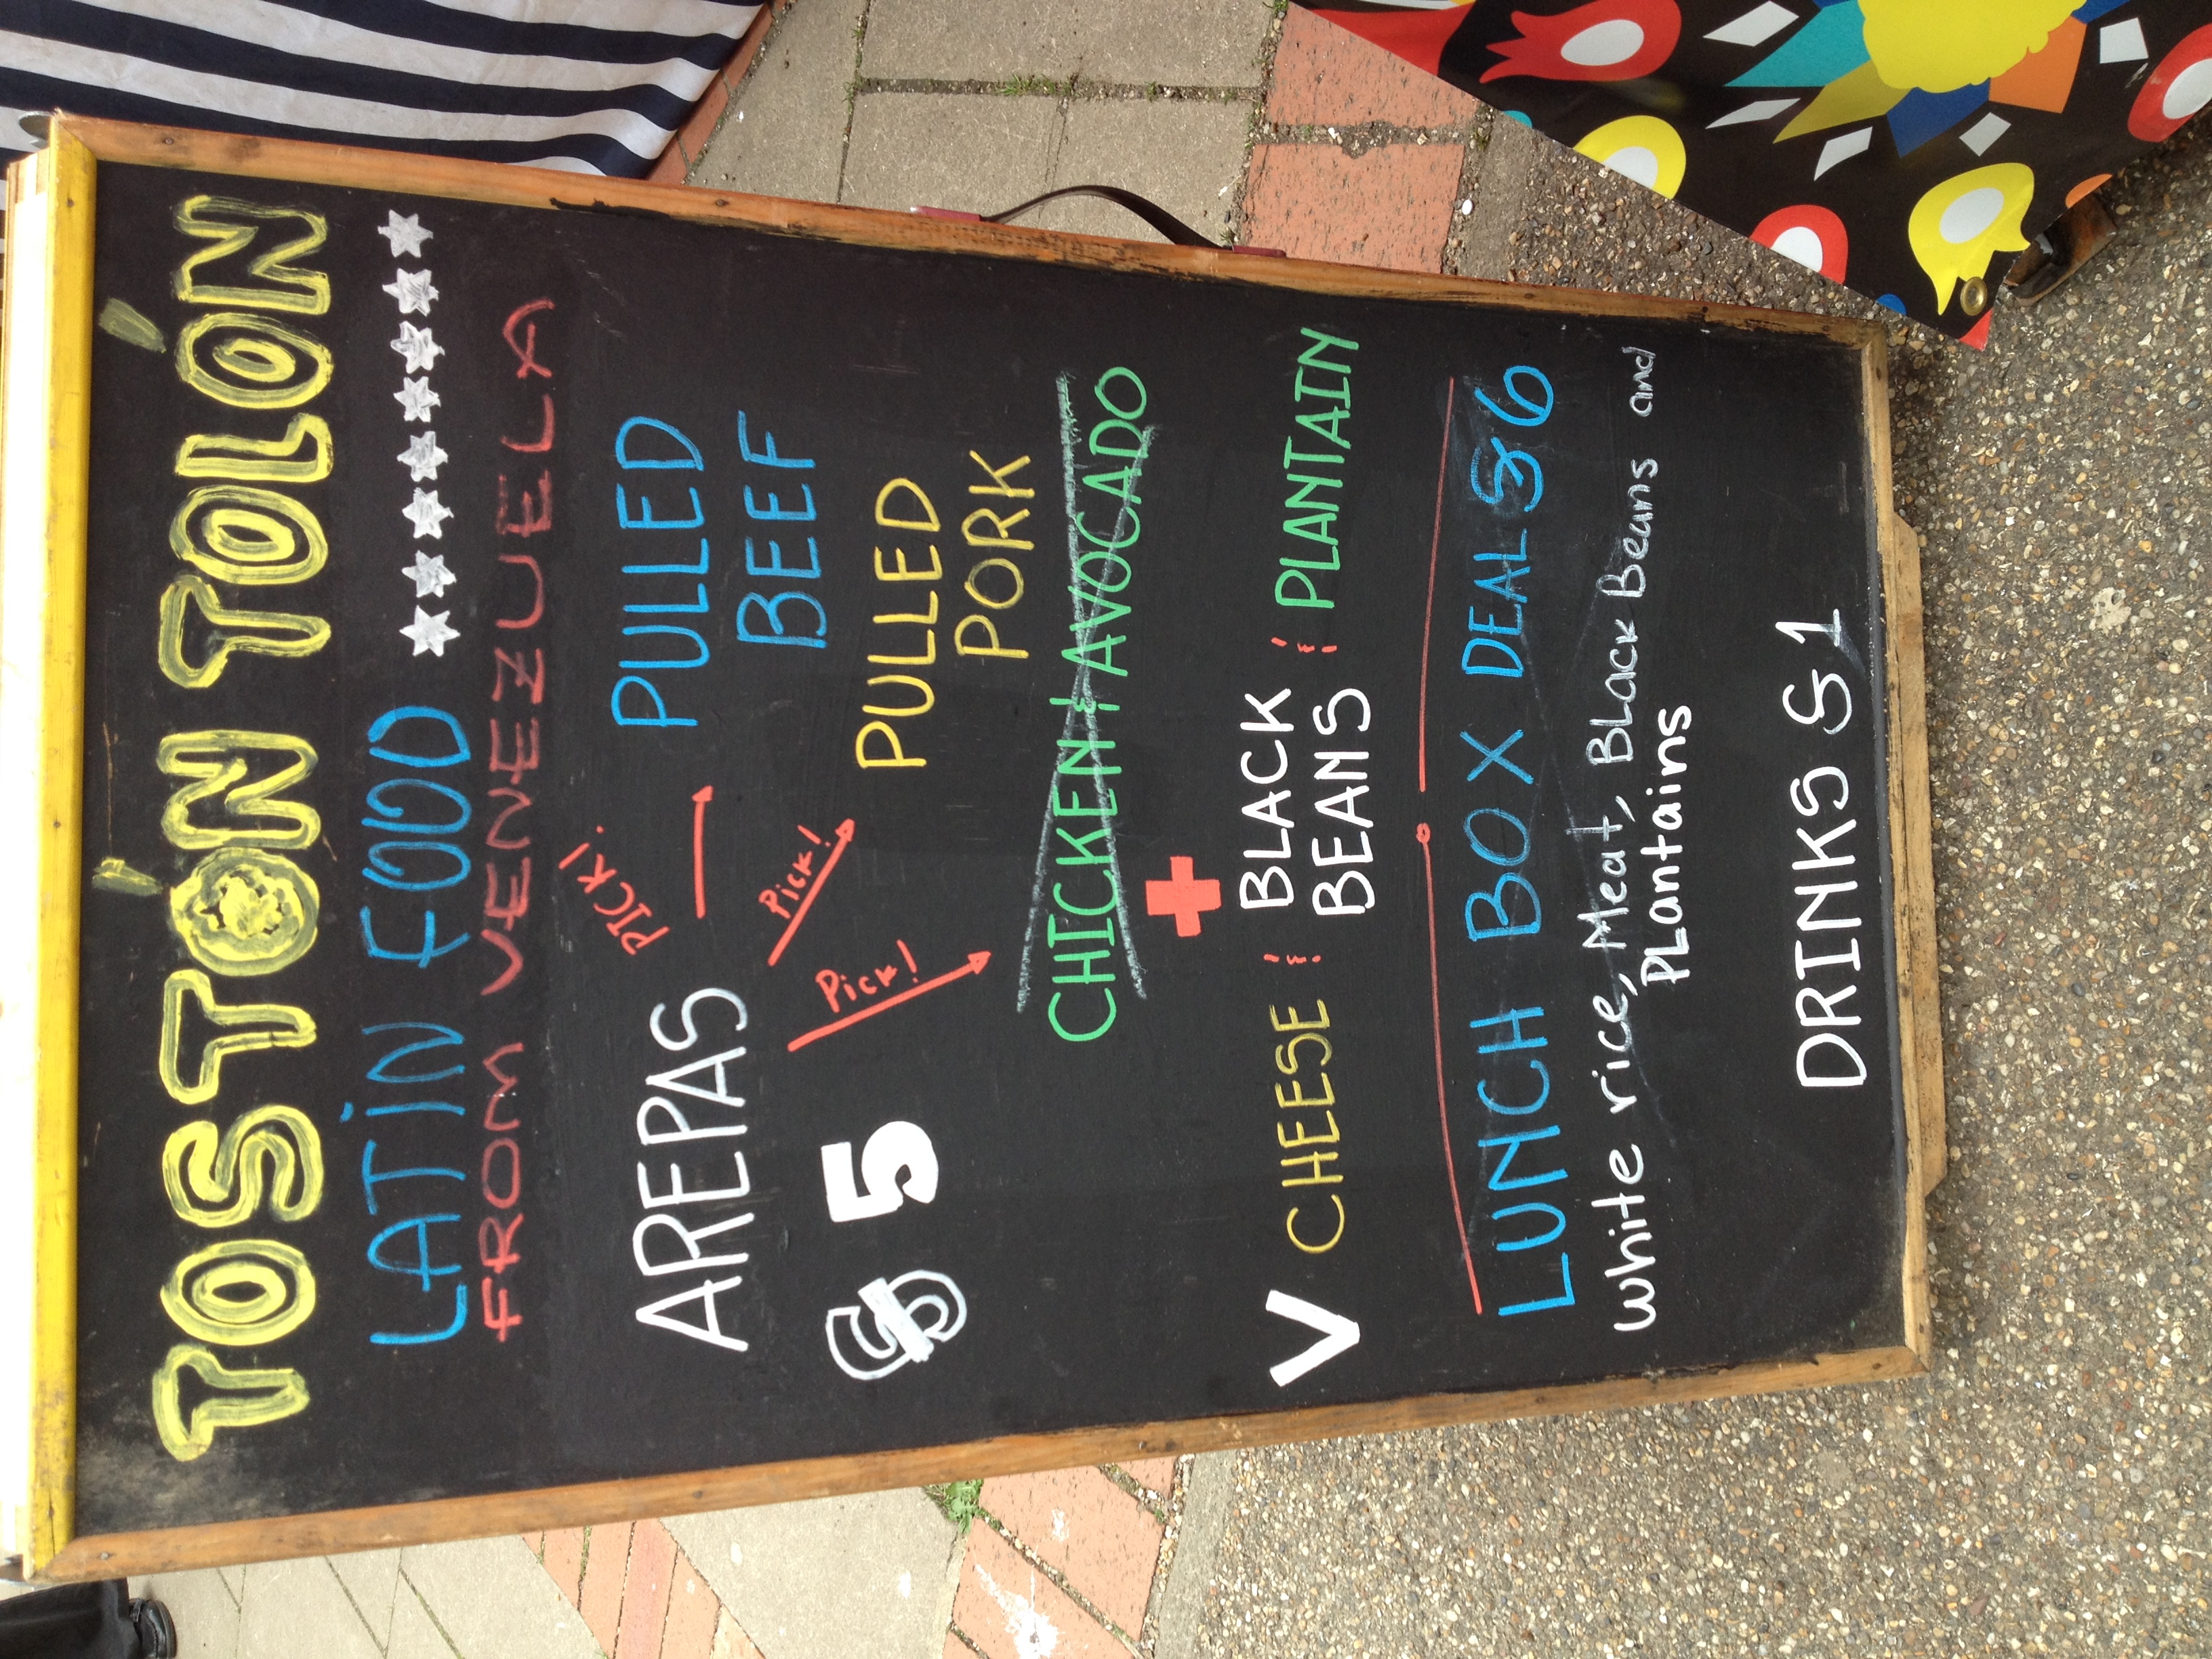 TOSTÓN TOLÓN
LATIN FOOD
FROM VENEZUELA
PICK!
AREPAS
PULLED
BEEF
Pick!
Pick!
5
PULLED
PORK
CHICKEN & AVOCADO
+
V CHEESE & BLACK BEANS & PLANTAIN
LUNCH BOX DEAL £6
white rice, Meat, BLack Beans and
PLantains
DRINKS £1